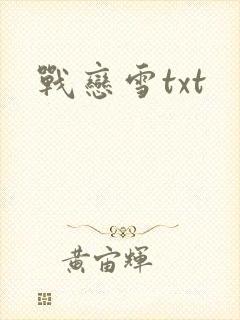 戰戀雪txt
黃宙輝